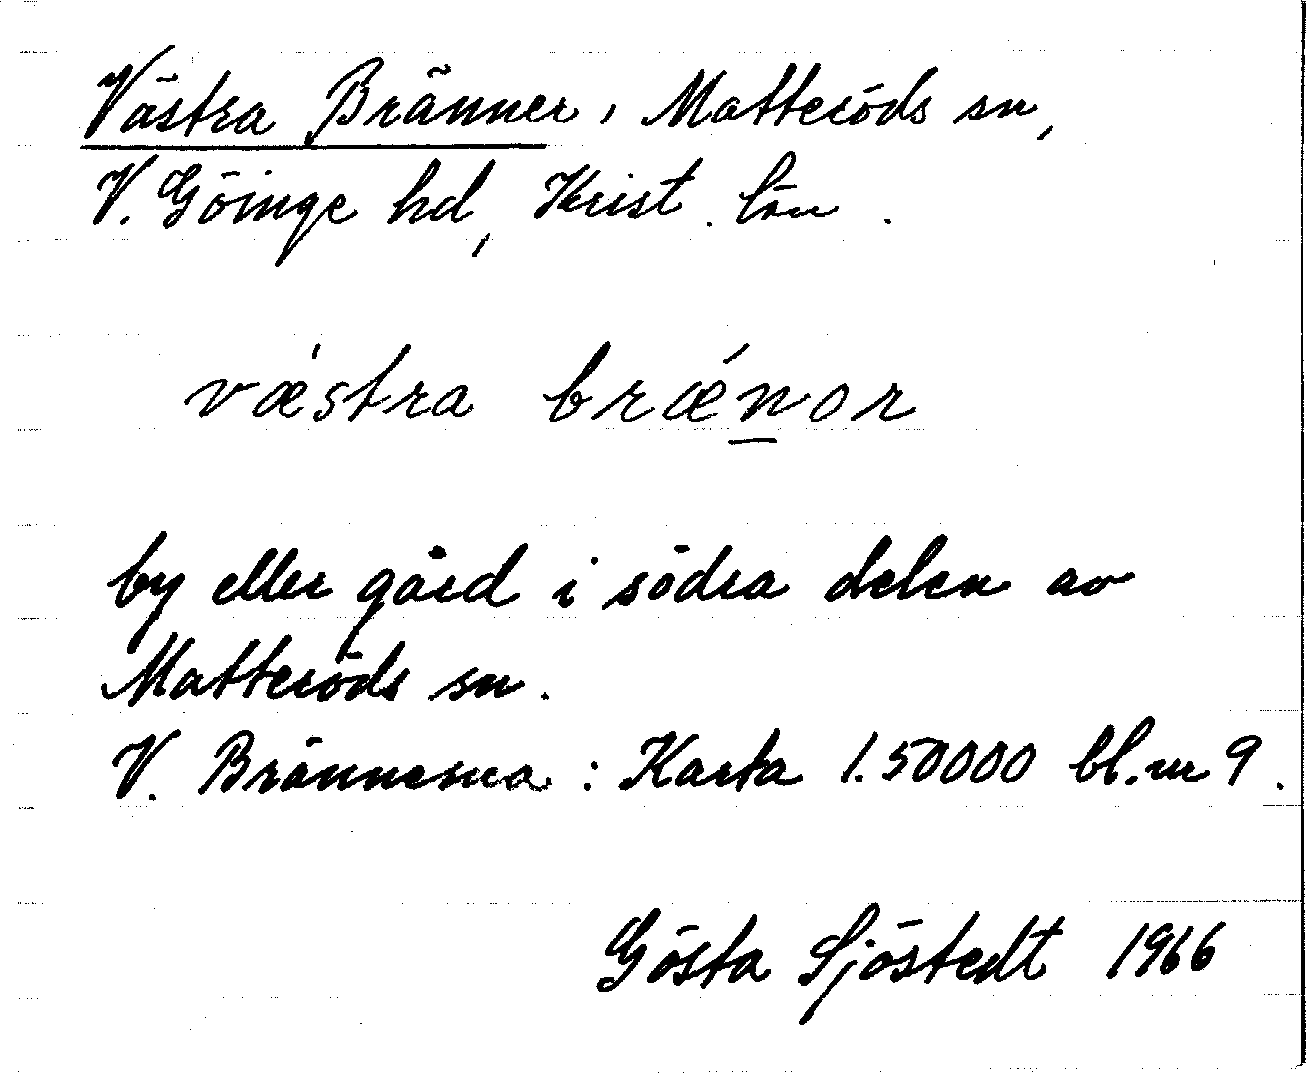 Västra Bränner, Matteröds sn,
V. Göinge hd, Krist. län.
vǽstra brǽn̲or
by eller gård i södra delen av
Matteröds sn.
V. Brännerna: Karta 1.50000 bl.nr 9.
Gösta Sjöstedt 1966